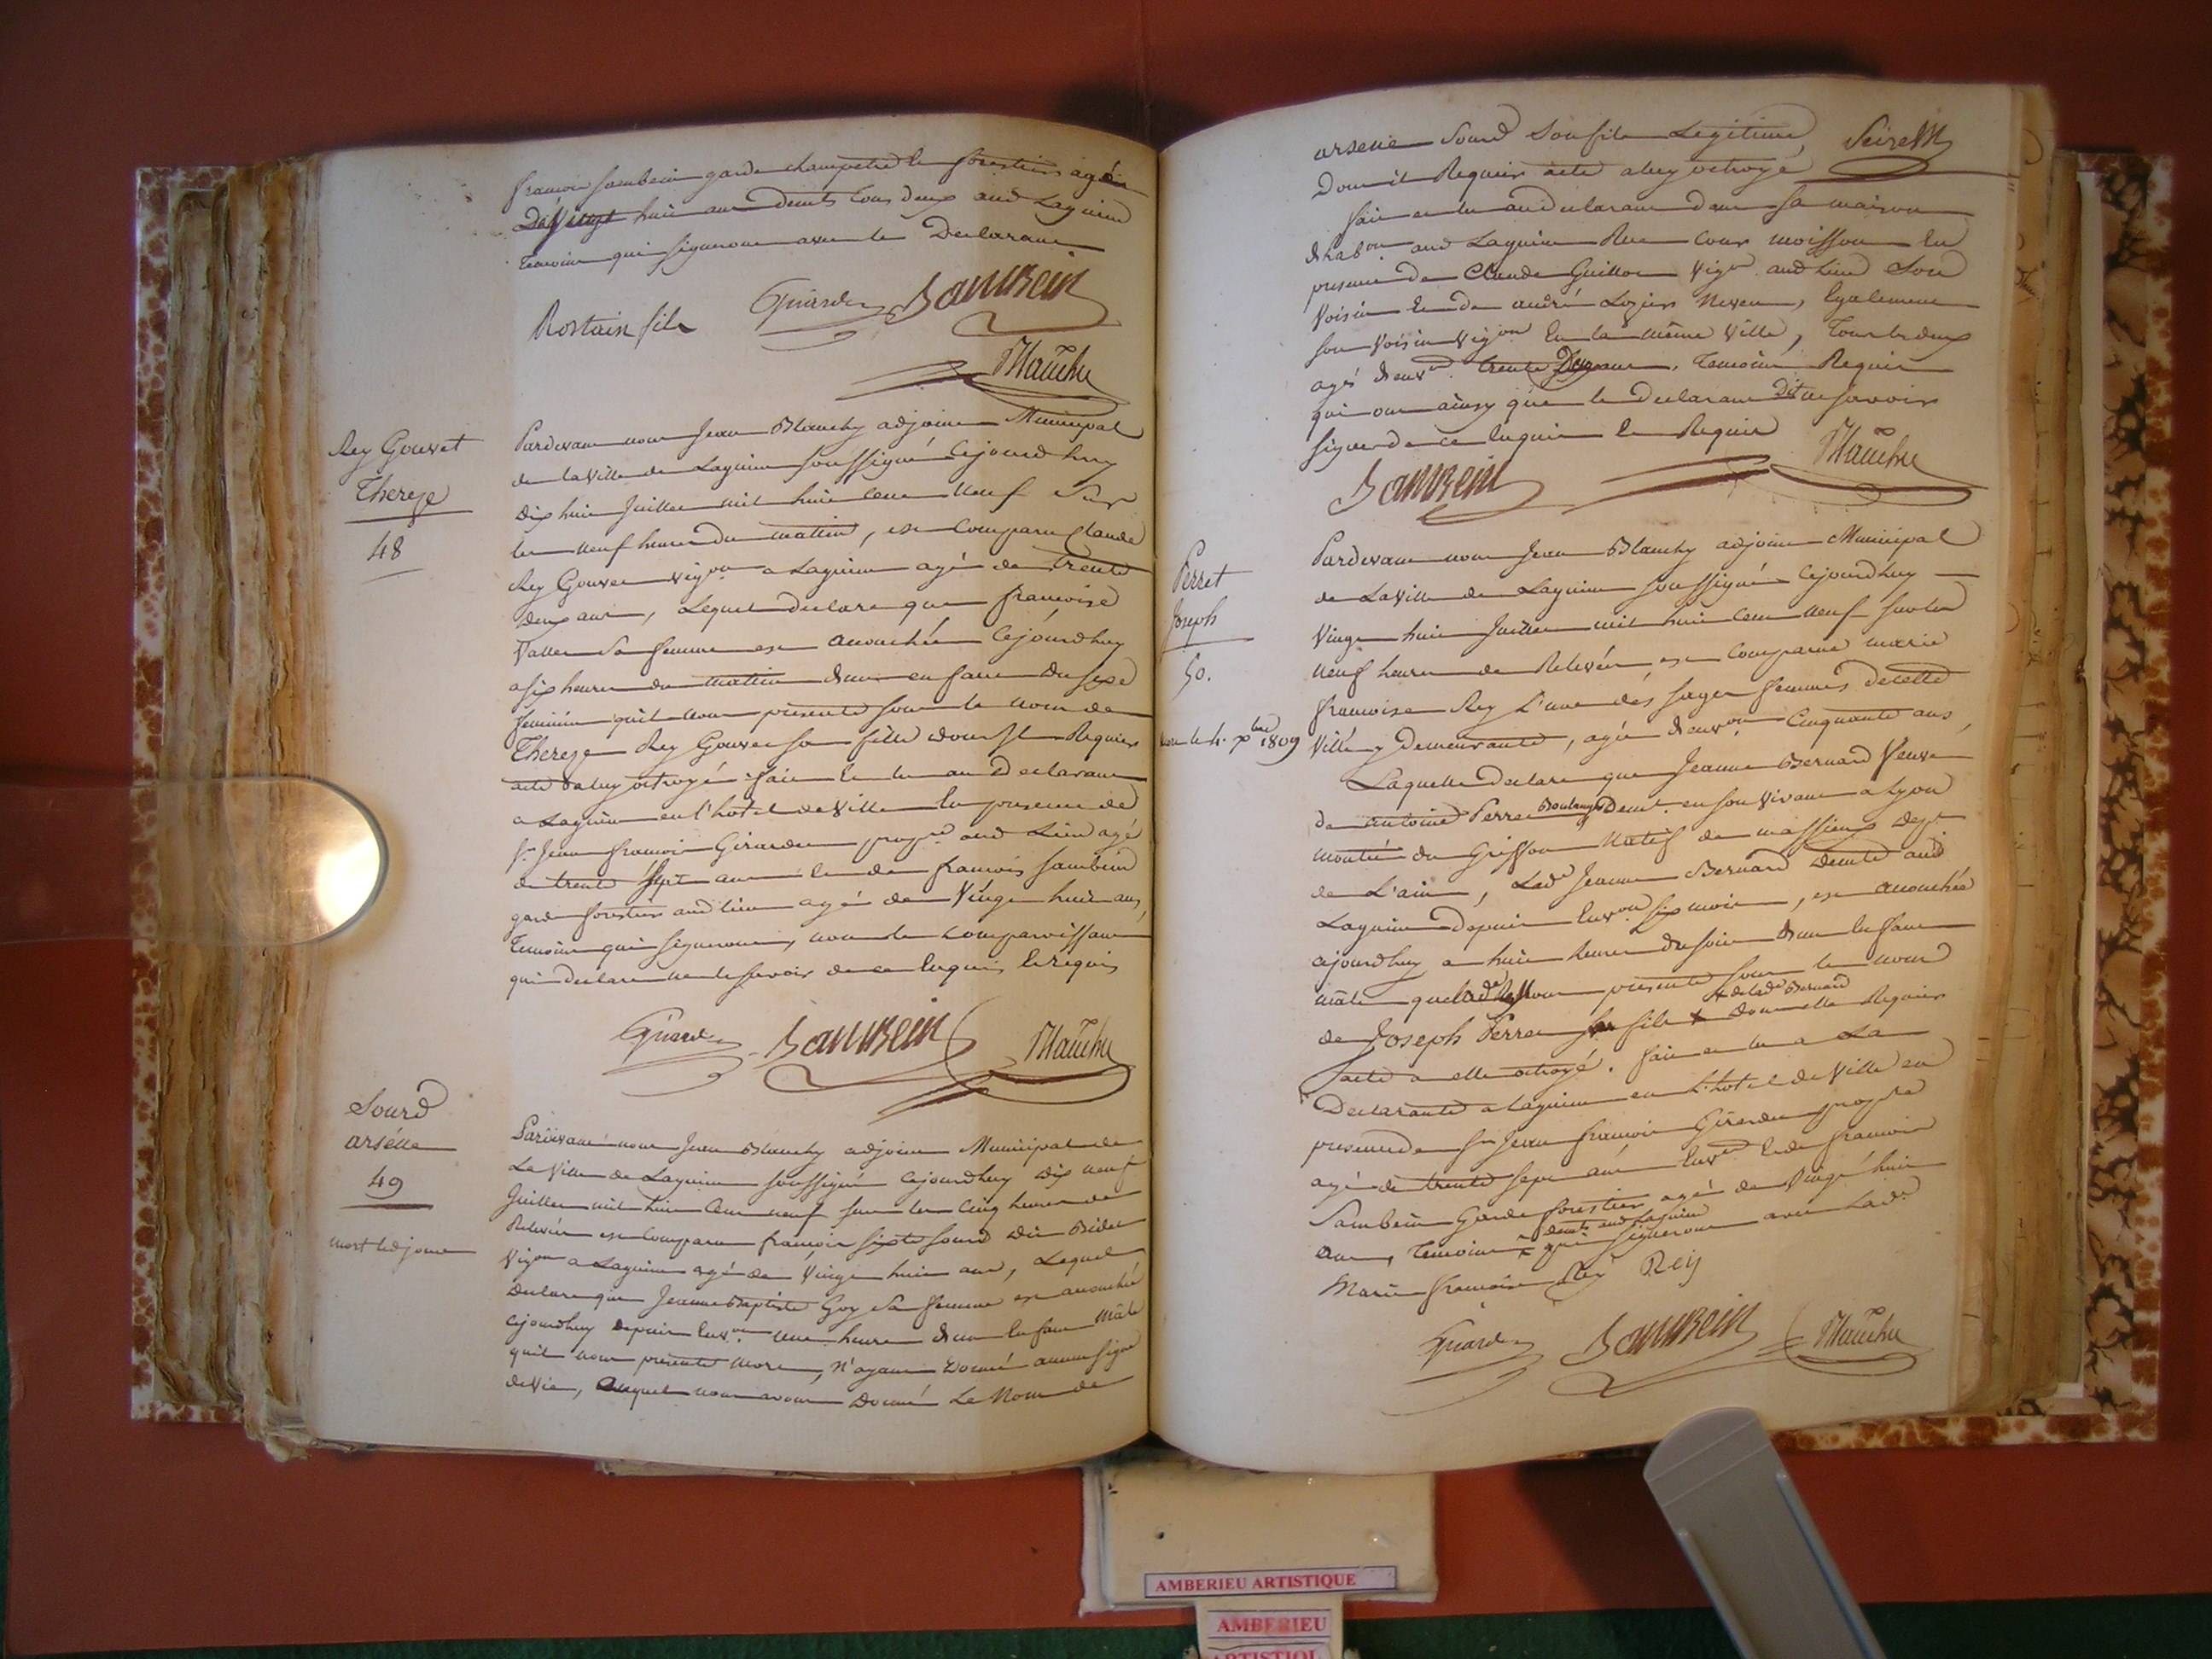 françois sambein garde champetre et forestier agés
de vingt huit ans demts tous deux aud Lagnieu
temoins qui signeront avec le Declarant
Rostain fils Girardet Sambein
Blanchy
Rey Gouvet
Thereze
48
Pardevant nous Jean Blanchy adjoint Municipal
de la Ville de Lagnieu soussigné Cejourdhuy
dix huit Juillet mil huit cent neuf Sur
les neuf heures du matin, est Comparu Claude
Rey Gouvet vigon a Lagnieu agé de trente
deux ans, Lequel declare que francoise
Vallet Sa femme est accouchée Cejourdhuy
a six heures du matin d'un enfant du sexe
feminin qu'il nous presente sous le nom de
Thereze Rey Gouvet sa fille dont Il Requiert
acte a luy octroyé fait et lu au Declarant
a Lagnieu en l'hotel de Ville en presence de
sr Jean francois Girardet propre aud Lieu agé
de trente sept ans et de francois sambein
garde forestier aud lieu agé de Vingt huit ans,
temoins qui signeront, non le comparoissant
qui declare ne le savoir de ce Enquis et requis
Girardet Sambein Blanchy
Sourd
arsene
49
mort led jour
Pardevant nous Jean Blanchy adjoint Municipal de
La Ville de Lagnieu soussigné Cejourdhuy dix neuf
Juillet mil huit Cent neuf sur les Cinq heures de
Relevée est Comparu francois sixte sourd dit Bidet
Vigon a Lagnieu agé de Vingt huit ans, Lequel
declare que Jeanne Baptiste Goy Sa femme est accouchée
cejourdhuy depuis Envon une heure d'un Enfant mâle
quil nous presente mort, n'ayant donné aucun signe
de Vie, auquel nous avons donné Le Nom de
arsene Sourd Son fils Legitime,
Dont il Requiert acte a luy octroyé
fait et lu au declarant dans sa maison
d'habon aud Lagnieu Rue Cour moisson En
presence de Claude Guillot Vigon aud Lieu Son
Voisin et de andré Lozier Neveu, Egalement
son Voisin vigon En la même Ville, tous les deux
agés d'envon trente ans, temoins Requis
qui ont ainsy que le declarant dit ne savoir
signer de ce Enquis et Requis
Sambein Blanchy
Perret
Joseph
50.
mort le 4. Xbre 1809
Pardevant nous Jean Blanchy adjoint Municipal
de La Ville de Lagnieu soussigné Cejourdhuy
Vingt huit Juillet mil huit cent neuf sur les
neuf heures de Relevée, est Comparue marie
francoise Rey l'une des sages femmes de cette
Ville y demeurante, agée d'envon Cinquante ans,
Laquelle declare que Jeanne Bernard Veuve
de antoine Perret Boulanger Demt en son Vivant a Lyon
montée du Griffon Natif de massieux dept
de L'ain, Lade Jeanne Bernard demte aud
Lagnieu depuis Envon six mois, est accouchée
cejourdhuy a huit heures du soir d'un Enfant
mâle que lade Rey nous presente sous le nom
de Joseph Perret fils + de lade Bernard dont elle Requiert
acte a elle octroyé. fait et lu a La
Declarante a Lagnieu en L'hotel de Ville en
presence de sr Jean francois Girardet propre
agé de trente sept ans Envon Et de francois
Sambein Garde forestier agé de Vingt huit
ans, temoins + demts aud Lagnieu qui signeront avec Lade
Marie francoise Rey Rey
Girardet Sambein Blanchy
AMBERIEU ARTISTIQUE
AMBERIEU
ARTISTIQUE